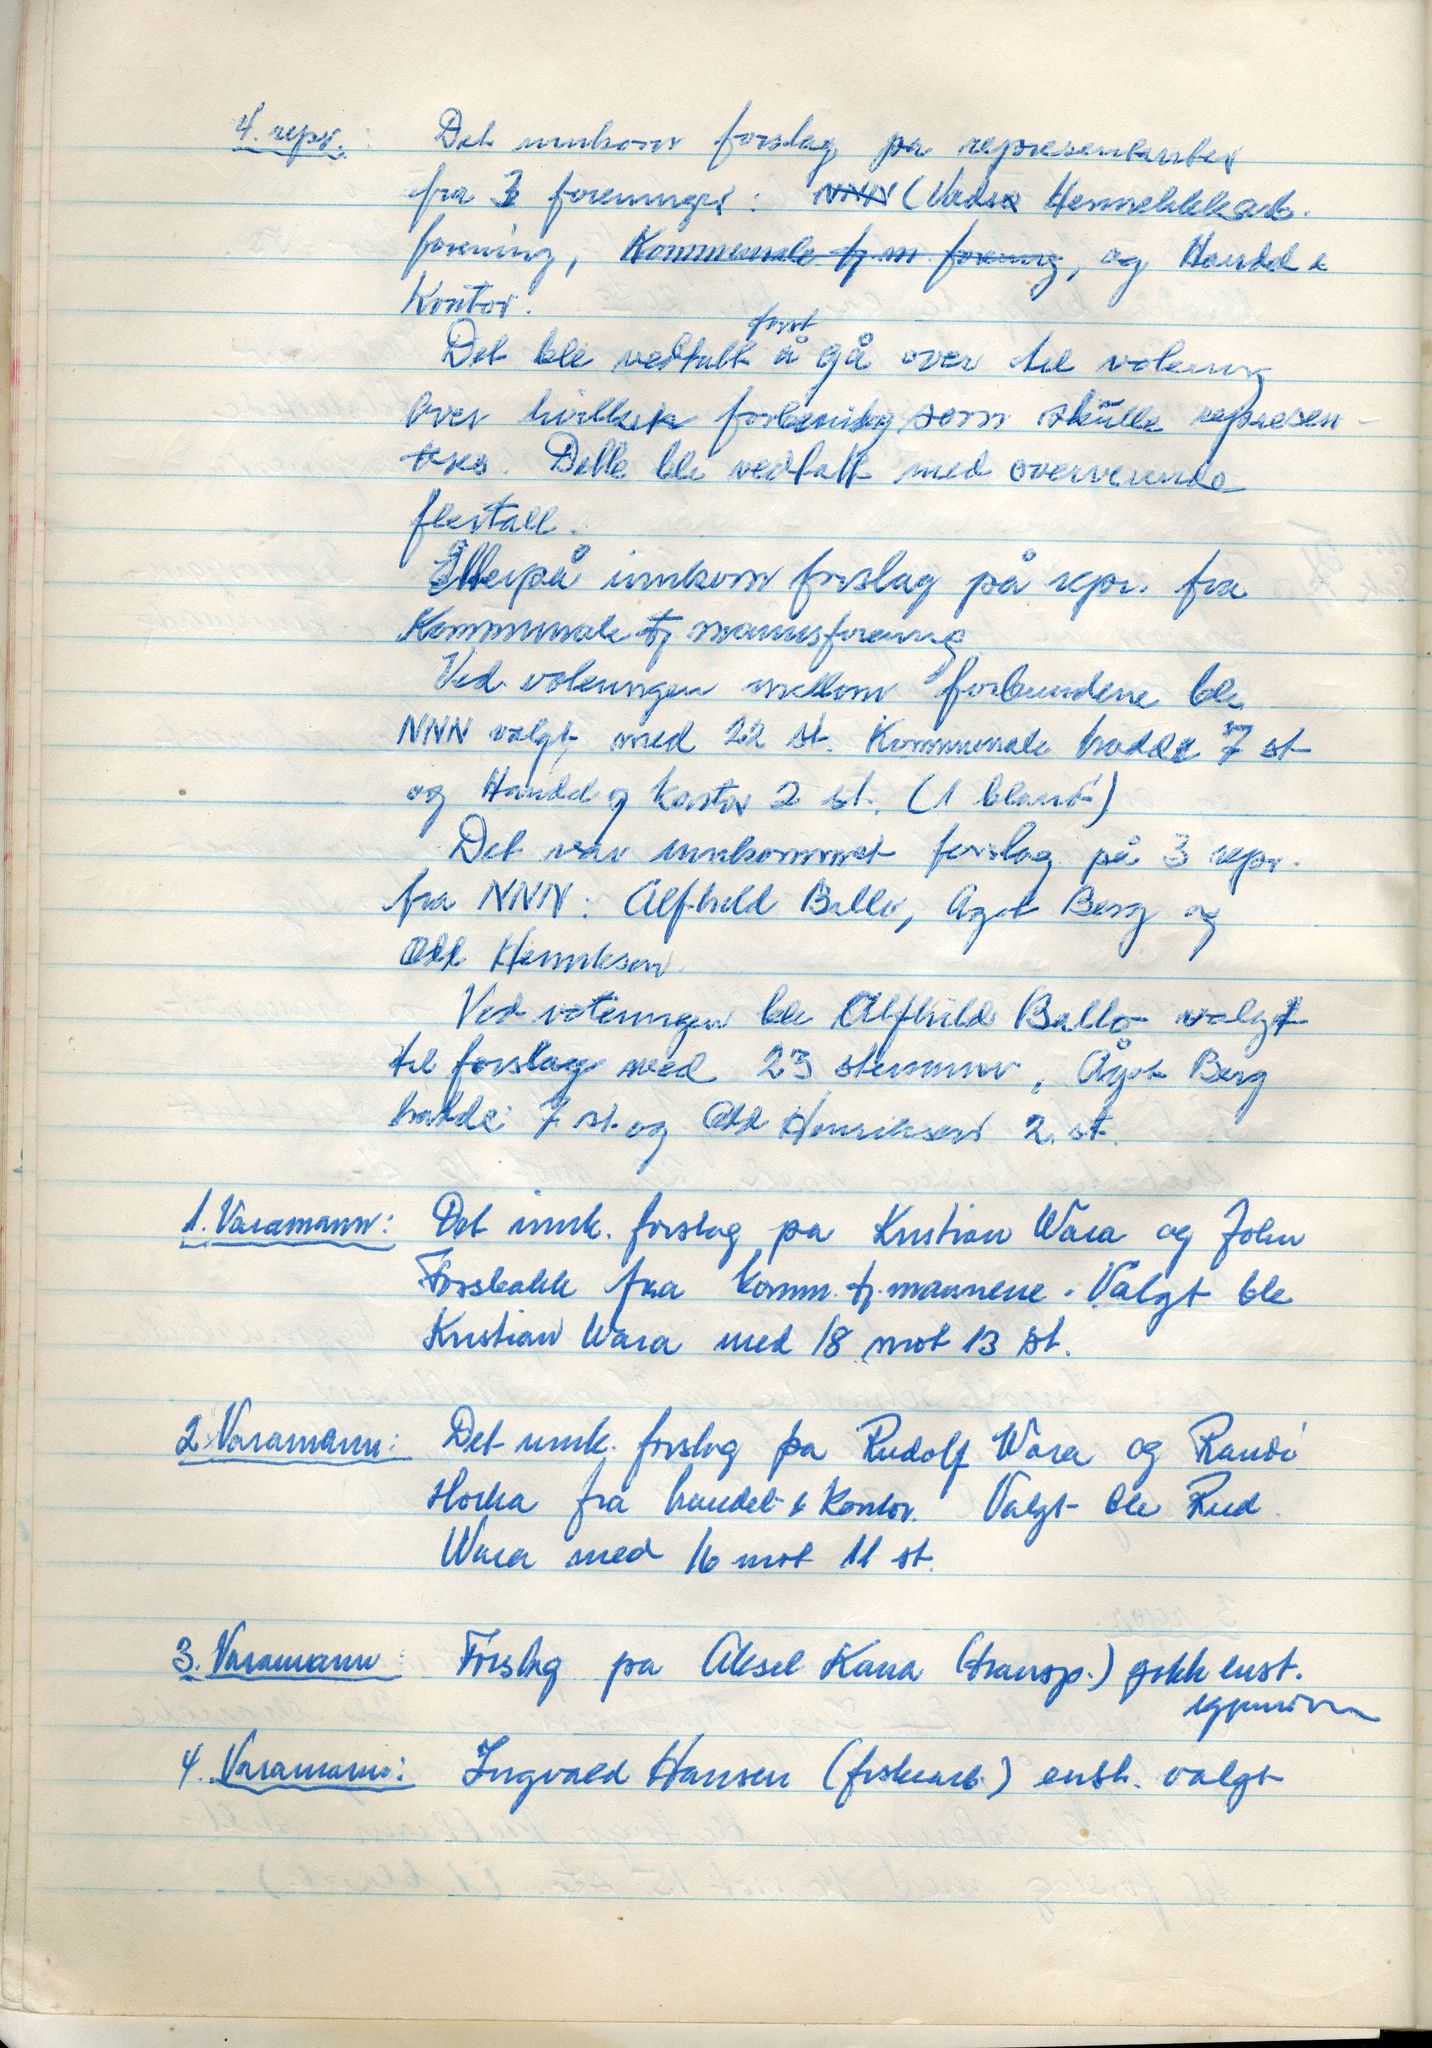 4. repr.: Det innkom forslag på representanter
fra 3 foreninger: NNN (Vadsø Hermetikkarb.
forening, Kommunale tj.m. forening, og Handel &
Kontor.
Det ble vedtatt først å gå over til votering
over hvilken forening som skulle represen-
teres. Dette ble vedtatt med overveiende
flertall.
Etterpå innkom forslag på repr. fra
Kommunale tj mannsforening
Ved voteringen mellom forbundene ble
NNN valgt med 22 st. Kommunale hadde 7 st
og Handel og Kontor 2 st. (1 blank)
Det var innkommet forslag på 3 repr.
fra NNN: Alfhild Ballo, Ågot Berg og
Odd Henriksen.
Ved voteringen ble Alfhild Ballo valgt
til forslag med 23 stemmer, Ågot Berg
hadde 7 st. og Odd Henriksen 2. st.
1. Varamann: Det innk. forslag på Kristian Wara og John
Forsbakk fra komm. tj. mannene. Valgt ble
Kristian Wara med 18 mot 13 st.
2. Varamann: Det innk. forslag på Rudolf Wara og Randi
fra handel & Kontor. Valgt ble Rud.
Wara med 16 mot 11 st.
3. Varamann: Forslag på Aksel Kana (transp.) gikk enst.
igjennom
4. Varamann: Ingvald Hansen (fiskearb.) enst. valgt